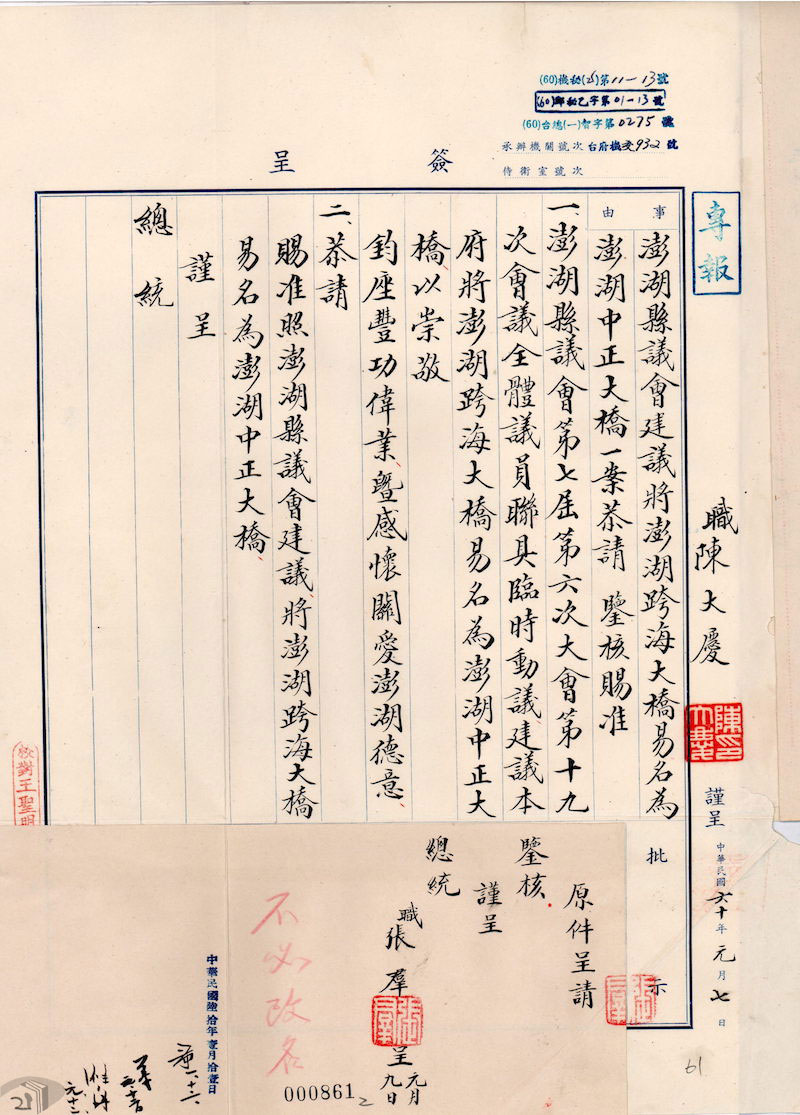 (60)機秘(乙)第11-13號
(60)鄭秘乙字第01-13號
(60)台總(一)智字第0275號
承辦機關號次 台府機 932 號
侍衛室號次
簽呈
專報
職陳大慶
謹呈 中華民國六十年元月七日
事由
澎湖縣議會建議將澎湖跨海大橋易名為
澎湖中正大橋一案恭請 鑒核賜准
批示
一、澎湖縣議會第七屆第六次大會第十九
次會議全體議員聯具臨時動議建議本
府將澎湖跨海大橋易名為澎湖中正大
橋以崇敬
鈞座豐功偉業暨感懷關愛澎湖德意
二、恭請
賜准照澎湖縣議會建議將澎湖跨海大橋
易名為澎湖中正大橋
謹呈
總統
校對王聖明
原件呈請
鑒核
謹呈
總統
職張羣呈 元月九日
不必改名
000861
中華民國陸拾年壹月拾壹日
61